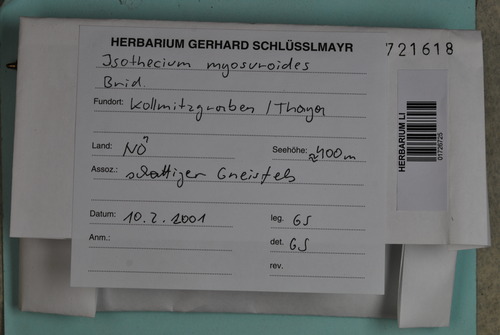 HERBARIUM GERHARD SCHLÜSSLMAYR
721618
Isothecium myosuroides
Brid.
Fundort: Kollmitzgraben / Thaya
Land: NÖ Seehöhe: ≈400m
Assoz.: schattiger Gneisfels
Datum: 10.2.2001 leg. GS
Anm.: det. GS
rev.
HERBARIUM LI
01726725